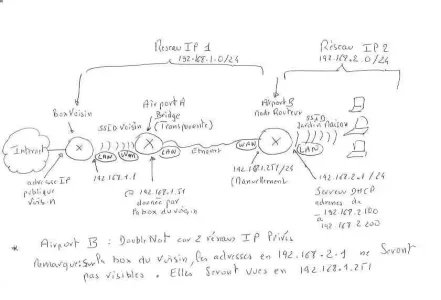 Réseau IP 1
192.168.1.0/24
Réseau IP 2
192.168.2.0/24
box Voisin
Airport A
Bridge
(Transparente)
Airport B
mode Routeur
SSID Voisin
SSID
Jardin Maison
Internet
X
X
X
LAN
WAN
LAN
Ethernet
WAN
LAN
adresse IP
publique
Voisin
192.168.1.1
@ 192.168.1.51
donnée par
la box du voisin
192.168.1.251/24
(Manuellement)
192.168.2.1/24
Serveur DHCP
adresses de
192.168.2.100
à
192.168.2.200
* Airport B : Double Nat car 2 réseaux IP Privés
Remarque: Sur la box du voisin, les adresses en 192.168.2.1 ne Seront
pas visibles. Elles Seront vues en 192.168.1.251